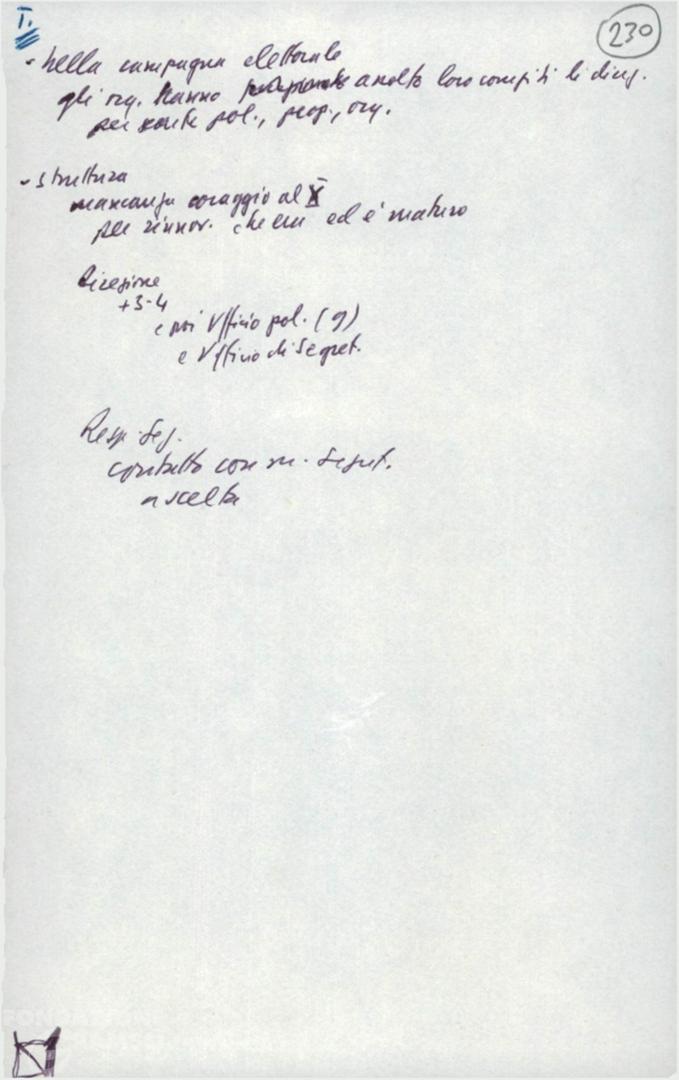 I.
230
- nella campagna elettorale
gli org. hanno assolto loro compiti di direz.
per parte pol., prop., org.
- struttura
mancanza coraggio al X
per rinnov. che era ed è maturo
Direzione
+3-4
e poi Ufficio pol. (9)
e Ufficio di Segret.
Resp. Sez.
contatto con m. Segret.
a scelta
FONDAZIONE